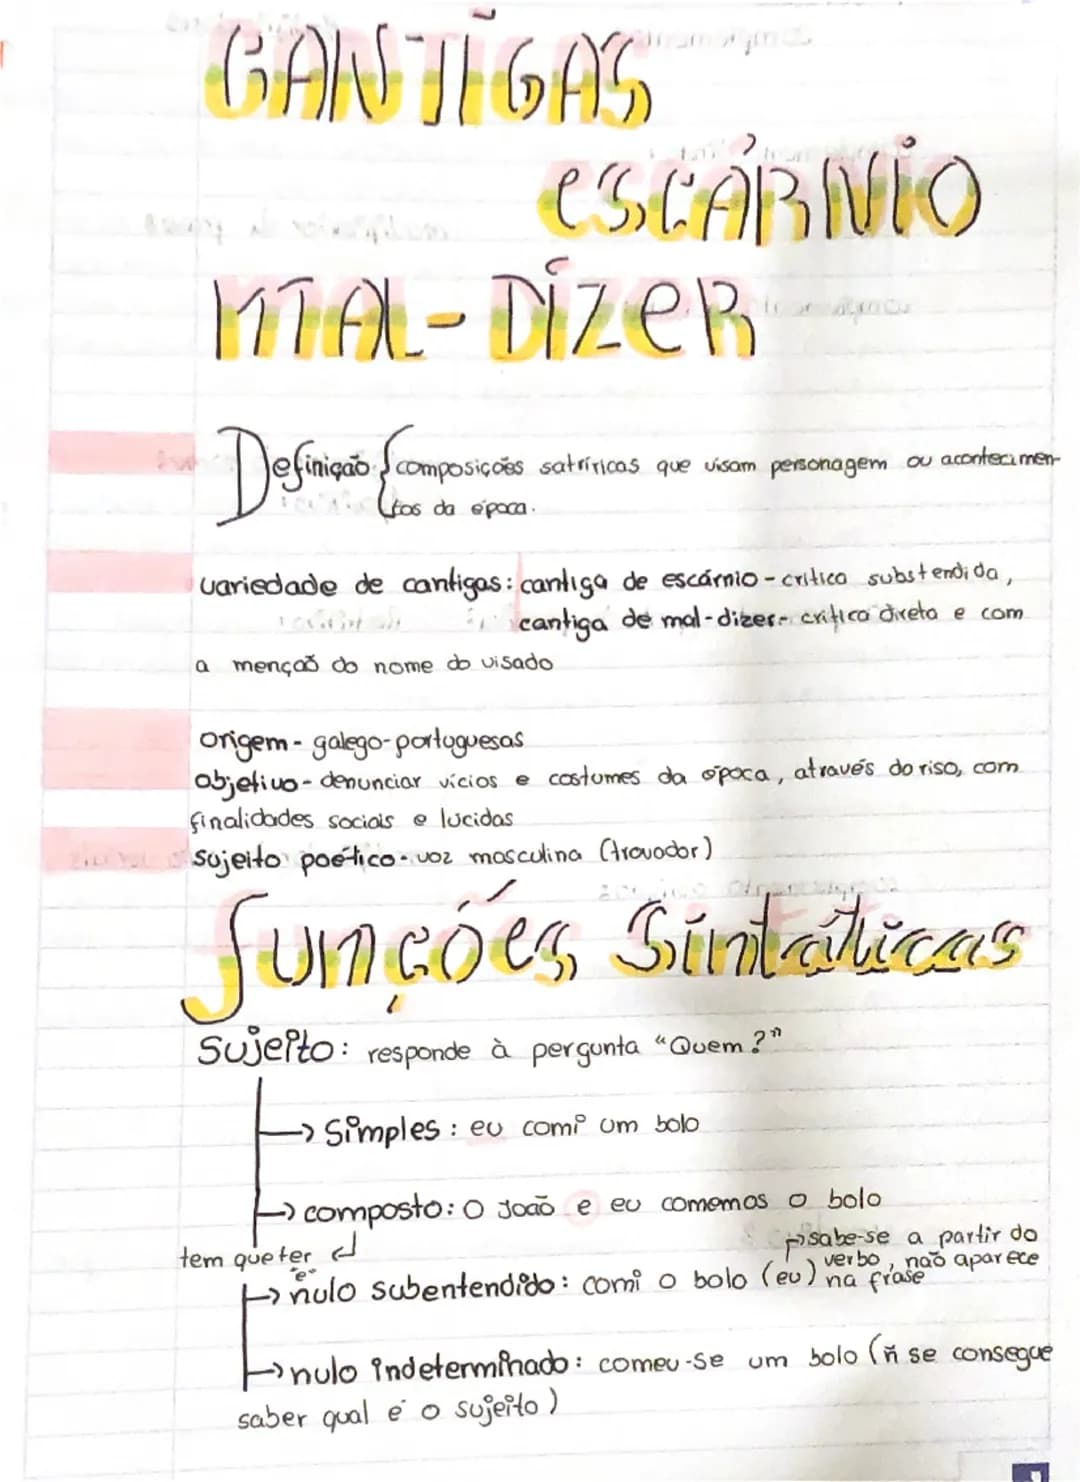 CANTIGAS
ESCÁRNIO
MAL-DIZER
Definição { composições satríricas que visam personagem ou acontecimen-
tos da época.
variedade de cantigas: cantiga de escárnio - crítica substendida,
cantiga de mal-dizer - crítica direta e com
a menção do nome do visado
origem - galego-portuguesas
objetivo - denunciar vícios e costumes da época, através do riso, com
finalidades sociais e lucidas
Sujeito poético - voz masculina (trovador)
funções Sintáticas
Sujeito: responde à pergunta "Quem?"
→ Simples: eu comi um bolo
→ composto: O João e eu comemos o bolo
tem que ter "e"
→ sabe-se a partir do verbo, não aparece na frase
→ nulo subentendido: comi o bolo (eu)
→ nulo indeterminado: comeu-se um bolo (ñ se consegue
saber qual é o sujeito)